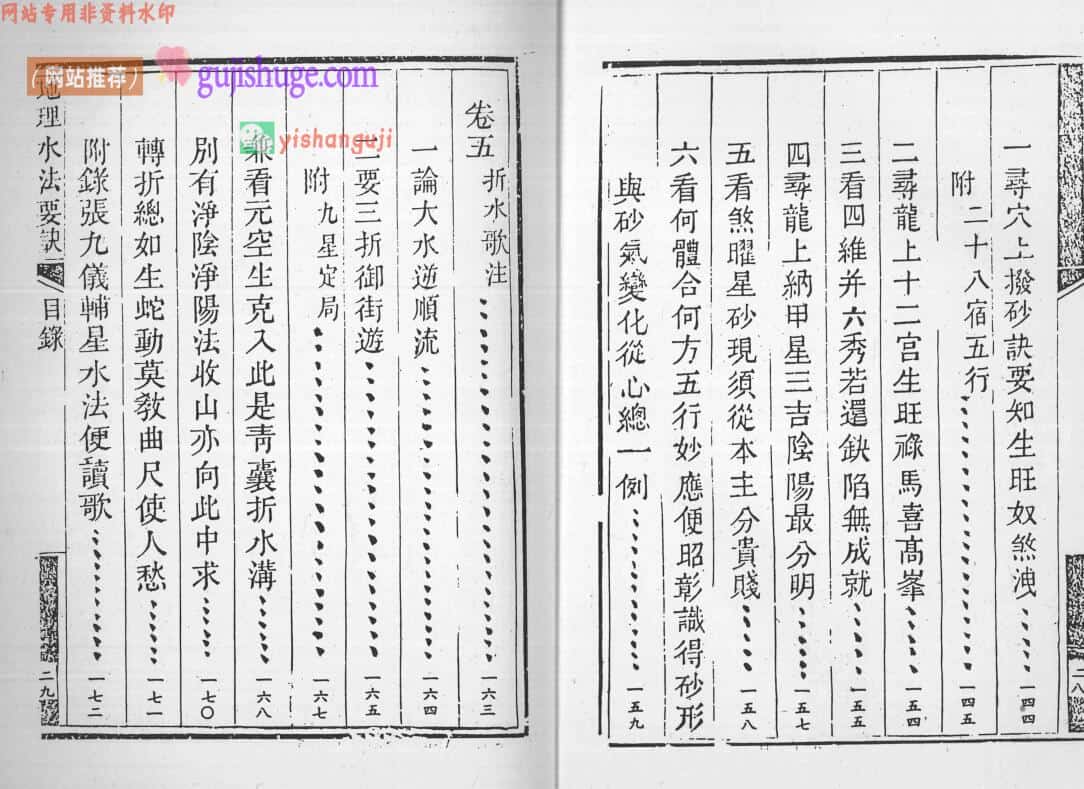 网站专用非资料水印
（网站推荐）
gujishuge.com
yishanguji
一尋穴上撥砂訣要知生旺奴煞洩 一四四
附二十八宿五行 一四五
二尋龍上十二宮生旺祿馬喜高峯 一五四
三看四維并六秀若還缺陷無成就 一五五
四尋龍上納甲星三吉陰陽最分明 一五七
五看煞曜星砂現須從本主分貴賤 一五八
六看何體合何方五行妙應便昭彰識得砂形
與砂氣變化從心總一例 一五九
二八
卷五 折水歌注 一六三
一論大水逆順流 一六四
二要三折御街遊 一六五
附九星定局 一六七
兼看元空生克入此是靑囊折水溝 一六八
別有淨陰淨陽法收山亦向此中求 一七〇
轉折總如生蛇動莫敎曲尺使人愁 一七一
附錄張九儀輔星水法便讀歌 一七二
地理水法要訣 目錄
二九